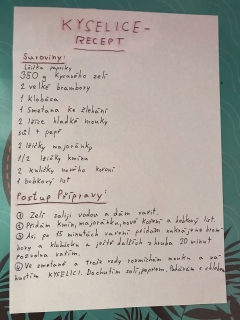 KYSELICE-
RECEPT
Suroviny:
Lžička papriky
350 g Kysaného zelí
2 velké brambory
1 Klobása
1 Smetana ke šlehání
2 lžíce hladké mouky
sůl + pepř
2 lžičky majoránky
1/2 lžičky kmínu
2 kuličky nového koření
1 bobkový list
Postup Přípravy:
① Zelí zaliji vodou a dám vařit.
② Přidám kmín, majoránku, nové koření a bobkový list.
③ Asi po 15 minutách vaření přidám nakrájené bram-
bory a klobásu a ještě dalších zhruba 20 minut
pozvolna vařím.
④ Ve smetaně a troše vody rozmíchám mouku a za-
hustím KYSELICI. Dochutím solí, pepřem. Podávám s chlebem